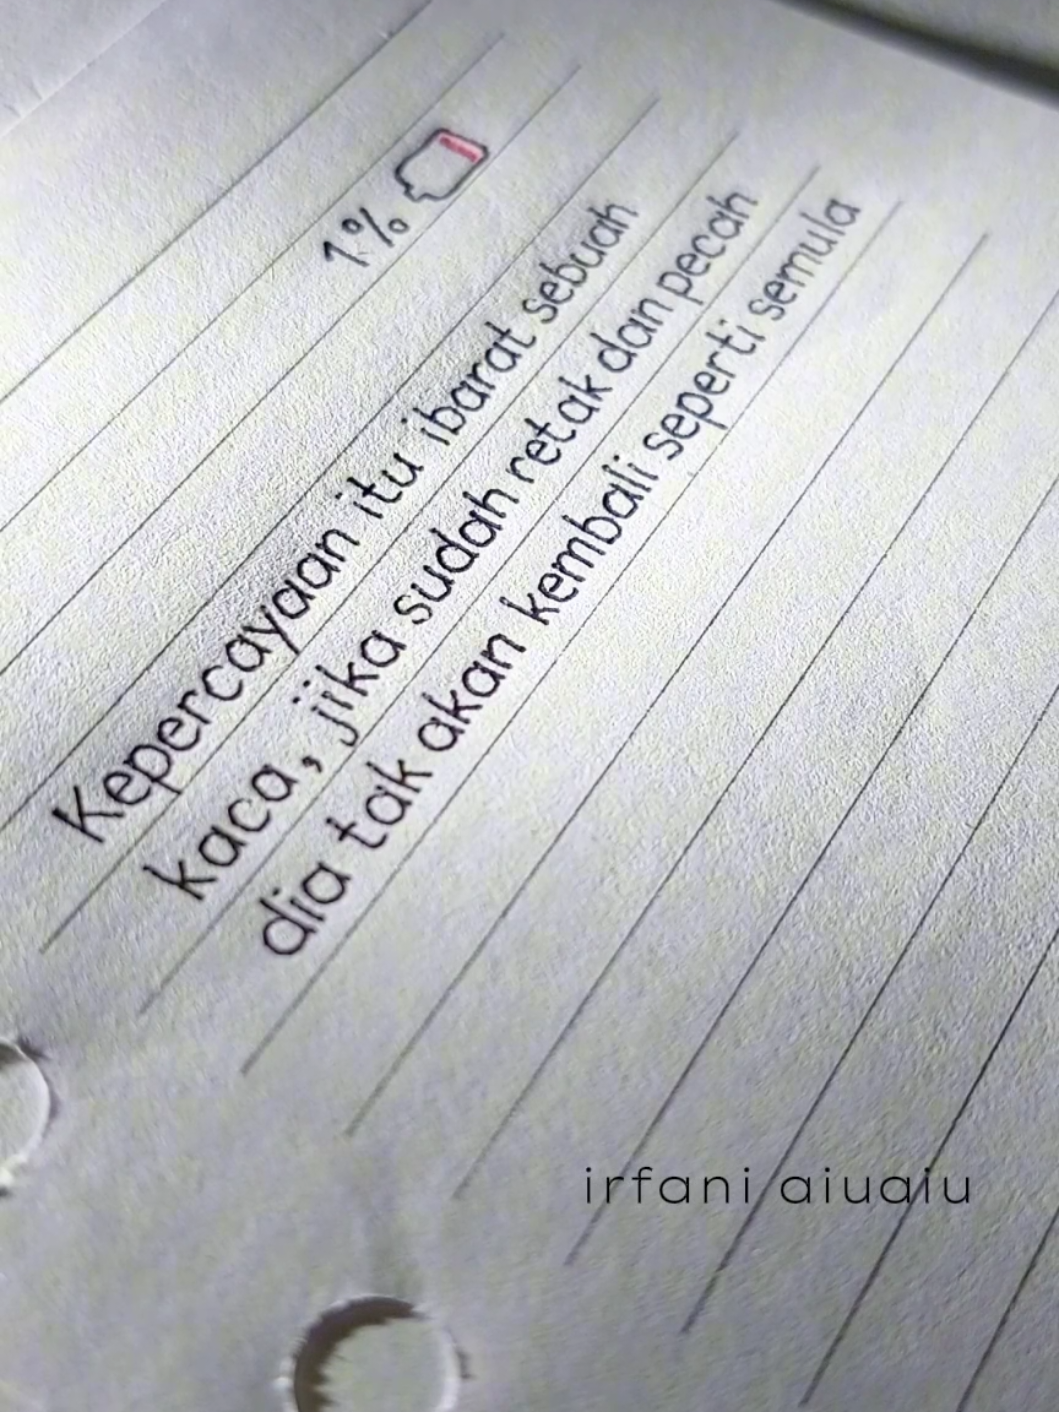 1%
Kepercayaan itu ibarat sebuah
kaca, jika sudah retak dan pecah
dia tak akan kembali seperti semula
irfani aiuaiu